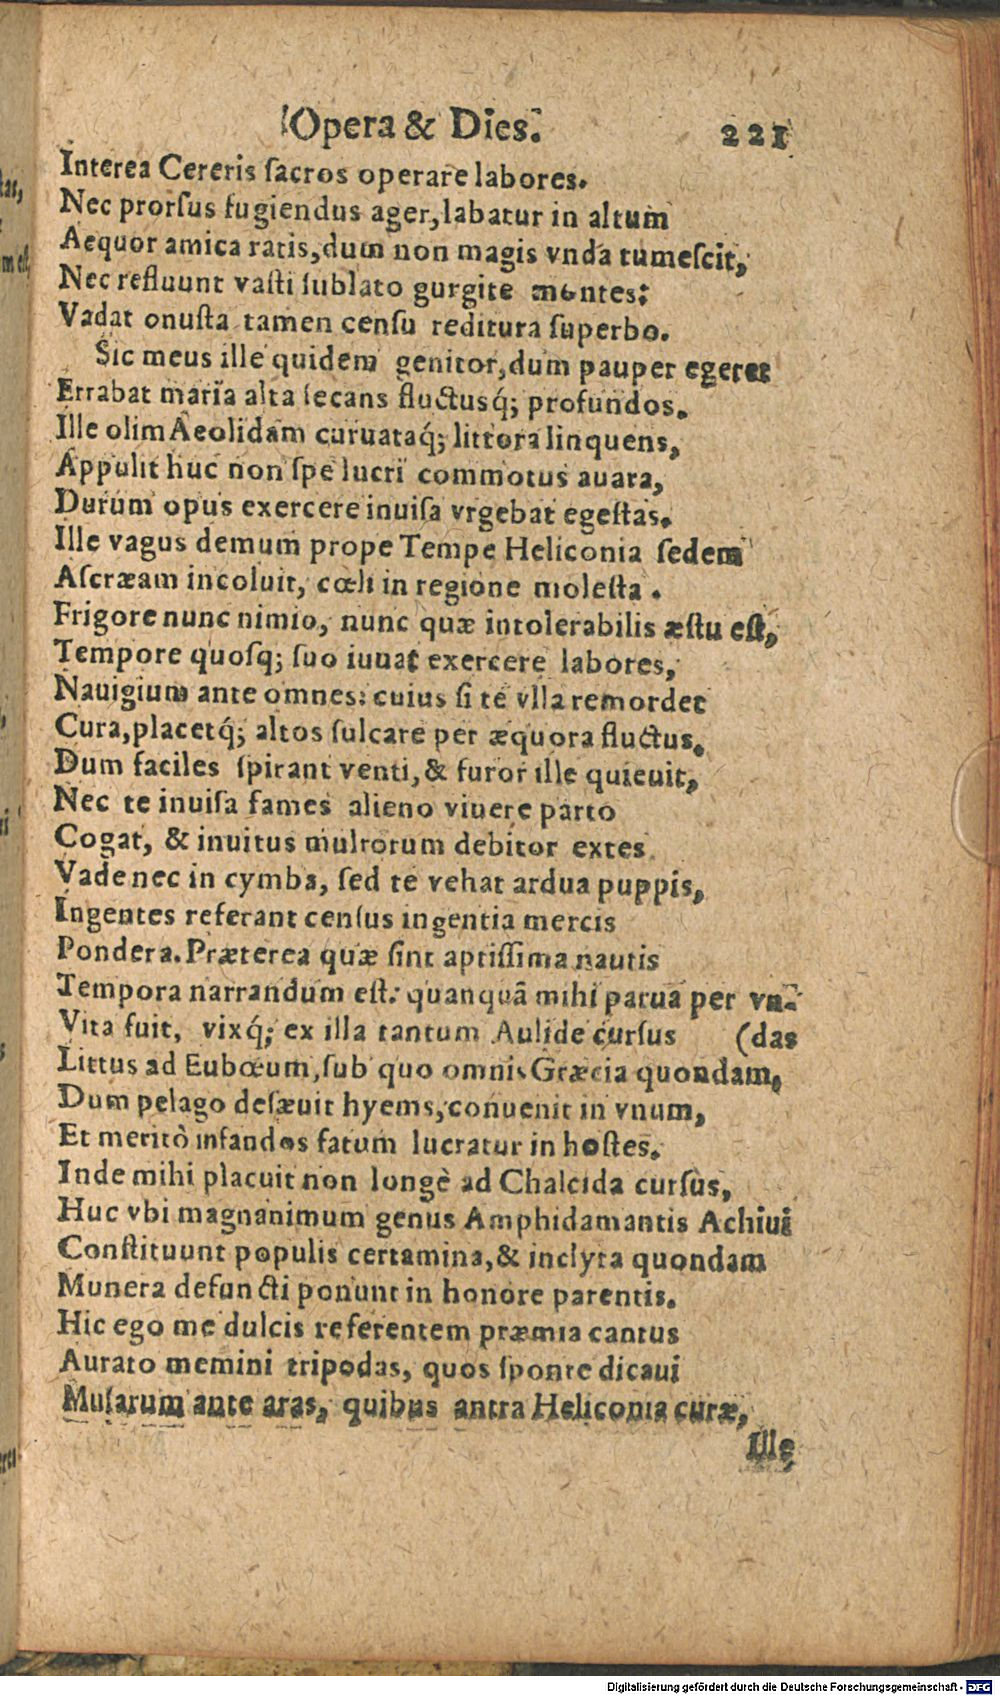 Opera & Dies. 221
Interea Cereris ſacros operare labores.
Nec prorſus fugiendus ager, labatur in altum
Aequor amica ratis, dum non magis vnda tumeſcit,
Nec refluunt vaſti ſublato gurgite montes:
Vadat onuſta tamen cenſu reditura ſuperbo.
Sic meus ille quidem genitor, dum pauper egeret
Errabat maria alta ſecans fluctusq́; profundos.
Ille olim Aeolidam curuataq́; littora linquens,
Appulit huc non ſpe lucri commotus auara,
Durum opus exercere inuiſa vrgebat egeſtas.
Ille vagus demum prope Tempe Heliconia ſedem
Aſcræam incoluit, cœli in regione moleſta.
Frigore nunc nimio, nunc quæ intolerabilis æſtu eſt,
Tempore quoſq; ſuo iuuat exercere labores,
Nauigium ante omnes: cuius ſi te vlla remordet
Cura, placetq́; altos ſulcare per æquora fluctus.
Dum faciles ſpirant venti, & furor ille quieuit,
Nec te inuiſa fames alieno viuere parto
Cogat, & inuitus multorum debitor extes.
Vade nec in cymba, ſed te vehat ardua puppis,
Ingentes referant cenſus ingentia mercis
Pondera. Præterea quæ ſint aptiſſima nautis
Tempora narrandum eſt: quanquã mihi parua per vn-
Vita fuit, vixq́; ex illa tantum Aulide curſus (das
Littus ad Eubœum, ſub quo omnis Græcia quondam,
Dum pelago deſæuit hyems, conuenit in vnum,
Et meritò infandos fatum lucratur in hoſtes.
Inde mihi placuit non longè ad Chalcida curſus,
Huc vbi magnanimum genus Amphidamantis Achiui
Conſtituunt populis certamina, & inclyta quondam
Munera defuncti ponunt in honore parentis.
Hic ego me dulcis referentem præmia cantus
Aurato memini tripodas, quos ſponte dicaui
Muſarum ante aras, quibus antra Heliconia curæ,
Ille
Digitalisierung gefördert durch die Deutsche Forschungsgemeinschaft - DFG